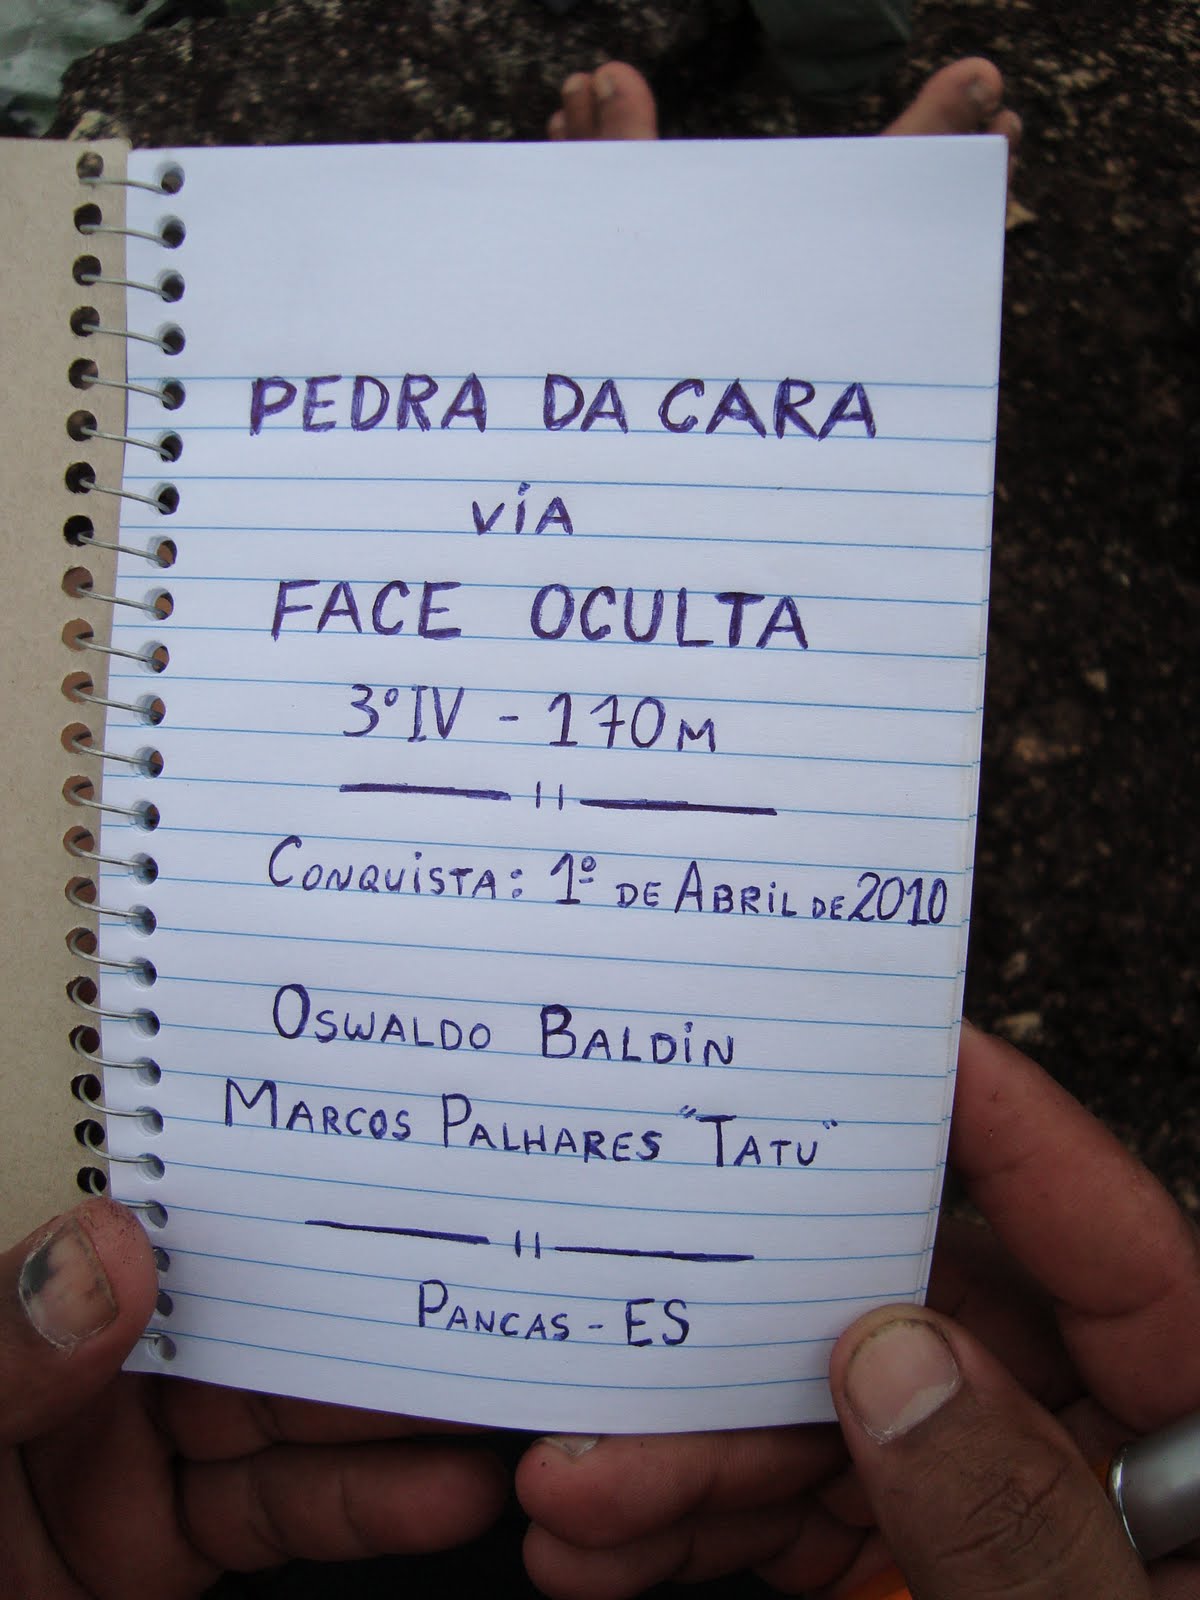 PEDRA DA CARA
VIA
FACE OCULTA
3º IV - 170M
CONQUISTA: 1º DE ABRIL DE 2010
OSWALDO BALDIN
MARCOS PALHARES "TATU"
PANCAS - ES